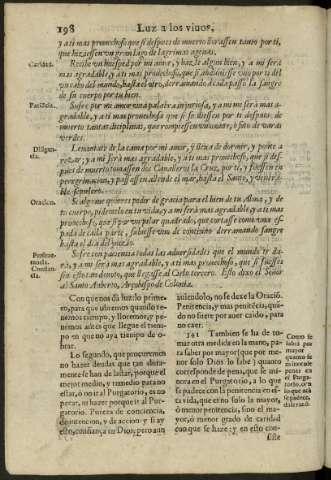 198 Luz a los viuos,
y a ti mas prouechoso, que si despues de muerto llorassen tanto por ti,
que hiziessen un gran lago de lagrimas agenas.
Caridad.
Recibe un huesped por mi amor, y hazle algun bien, y a mi serà
mas agradable, y a ti mas prouechoso, que si anduuiesse uno por ti del
un cabo del mundo, hasta el otro, derramando à cada passo la sangre
de su cuerpo por tu bien.
Paciēcia.
Sufre por mi amor una palabra injuriosa, y a mi me serà mas a-
gradable, y a ti mas prouechosa que si se diessen por ti despues de
muerto tantas diciplinas, que rompiessen
varas
verdes.
Diligen-
cia.
Leuantate de la cama por mi amor, y dexa de dormir, y ponte a
rezar, y a mi serà mas agradable, y a ti mas prouechoso, que si des-
pues de muerto tomassen dos Caualleros la Cruz, por ti, y fuessen en
peregrinacion, y passassen allende el mar, hasta el Santo, y visitassē
Sepulcro.
Oracion.
Si alguno quisieres pedir de gracia para el bien de tu Alma, y de
tu cuerpo, pidemelo en tu vida, y a mi serà mas agradable, y a ti mas
prouechosa, que si por un pilar quadrado, que cortasse como una es-
pada de cada parte, subiesse uno de continuo derramando sangre
hasta el dia del juizio.
Sufre con paciencia todas las aduersidades que el mundo te da-
rà, y a mi serà mas agradable, y a ti mas prouechoso, que si fuesses
tan deuoto, que llegasse al Cielo tercero. Esto dixo el Señor
al Santo Anberto, Arçobispo de Colonia.
Con que nos dà luz lo prime-
ro, para que obremos quando te-
nemos tiempo, y lloremos, y pe-
nemos antes que llegue el tiem-
po en que no aya tiempo de o-
brar.
Lo segundo, que procuremos
no hazer deudas que tan dificil-
mente se han de lastar, porque el
mejor medio, y remedio para no
estar, ò no ir al Purgatorio, es no
pecar, ni hazer porque ir al Pur-
gatorio. Pureza de conciencia,
de intencion, y de accion y si ay
esto, confiança en Dios; pero aun
quitando lo, no se dexe la Oraciō.
Penitencia, y mas penitēcia, quā-
do no fuere por auer caido, para
no caer.
191 Tambien se ha de to-
mar otra medida en la mano, pa-
ra saber por mayor (que por me-
nor solo Dios lo sabe) quanto
corresponde de pena, que se mi-
nora en el Purgatorio, a lo que
se padece con la penitencia en es-
ta vida, que en esto solo la mayor,
ò menor penitencia, sino el ma-
yor, ò menor grado de caridad
con que se haze; y en esto con-
Como se
sabrà por
mayor
quanto se
minora de
penas en
el Purga-
torio, a lo
que acà
se padece,
siste